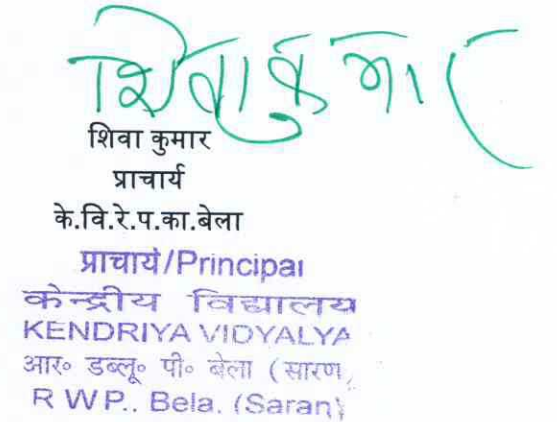 शिवा कुमार
शिवा कुमार
प्राचार्य
के.वि.रे.प.का.बेला
प्राचार्य/Principal
केन्द्रीय विद्यालय
KENDRIYA VIDYALYA
आर० डब्लू० पी० बेला (सारण)
R W P., Bela. (Saran)